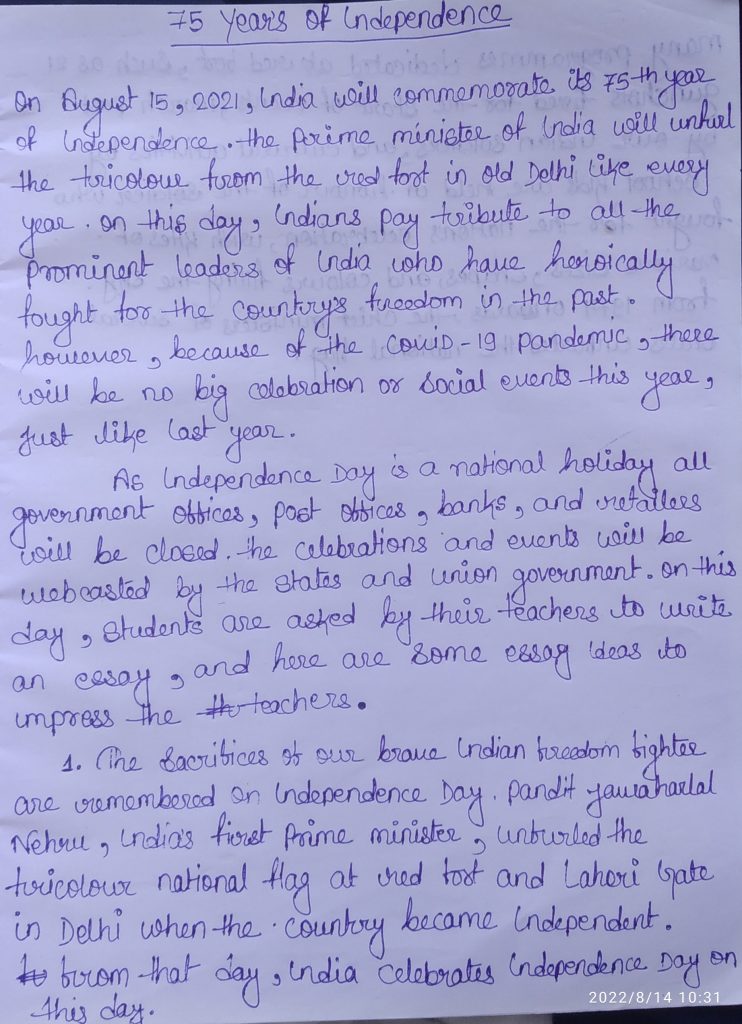 75 Years of Independence
On August 15, 2021, India will commemorate its 75-th year
of Independence. the Prime minister of India will unhurl
the tricolour from the red fort in old Delhi like every
year. on this day, Indians pay tribute to all the
prominent leaders of India who have heroically
fought for the country's freedom in the past.
however, because of the COVID-19 pandemic, there
will be no big celebration or social events this year,
Just like last year.
As Independence Day is a national holiday all
government offices, post offices, banks, and retailers
will be closed. the celebrations and events will be
webcasted by the states and union government. on this
day, students are asked by their teachers to write
an essay, and here are some essay ideas to
impress the teachers.
1. The Sacrifices of our brave Indian freedom fighter
are remembered on Independence Day. Pandit Jawaharlal
Nehru, India's first Prime minister, unfurled the
tricolour national flag at red fort and Lahori Gate
in Delhi when the country became Independent.
from that day, India celebrates Independence Day on
this day.
2022/8/14 10:31